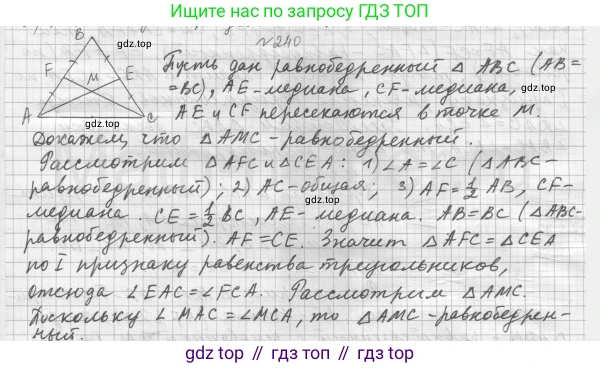 Ищите нас по запросу ГДЗ ТОП
№ 240
B
gdz.top
F
M
E
A
C
gdz.top
Пусть дан равнобедренный △ ABC (AB=
=BC), AE-медиана, CF-медиана,
AE и CF пересекаются в точке M.
Докажем, что △AMC-равнобедренный.
Рассмотрим △AFC и △CEA: 1) ∠A=∠C (△ABC-
равнобедренный); 2) AC-общая; 3) AF=1/2 AB, CF-
медиана. CE=1/2 BC, AE- медиана. AB=BC (△ABC-
равнобедренный). AF=CE. Значит △AFC=△CEA
по I признаку равенства треугольников,
отсюда ∠EAC=∠FCA. Рассмотрим △AMC.
Поскольку ∠MAC=∠MCA, то △AMC-равнобедрен-
ный.
gdz.top
gdz.top
gdz.top // гдз.топ // gdz.top